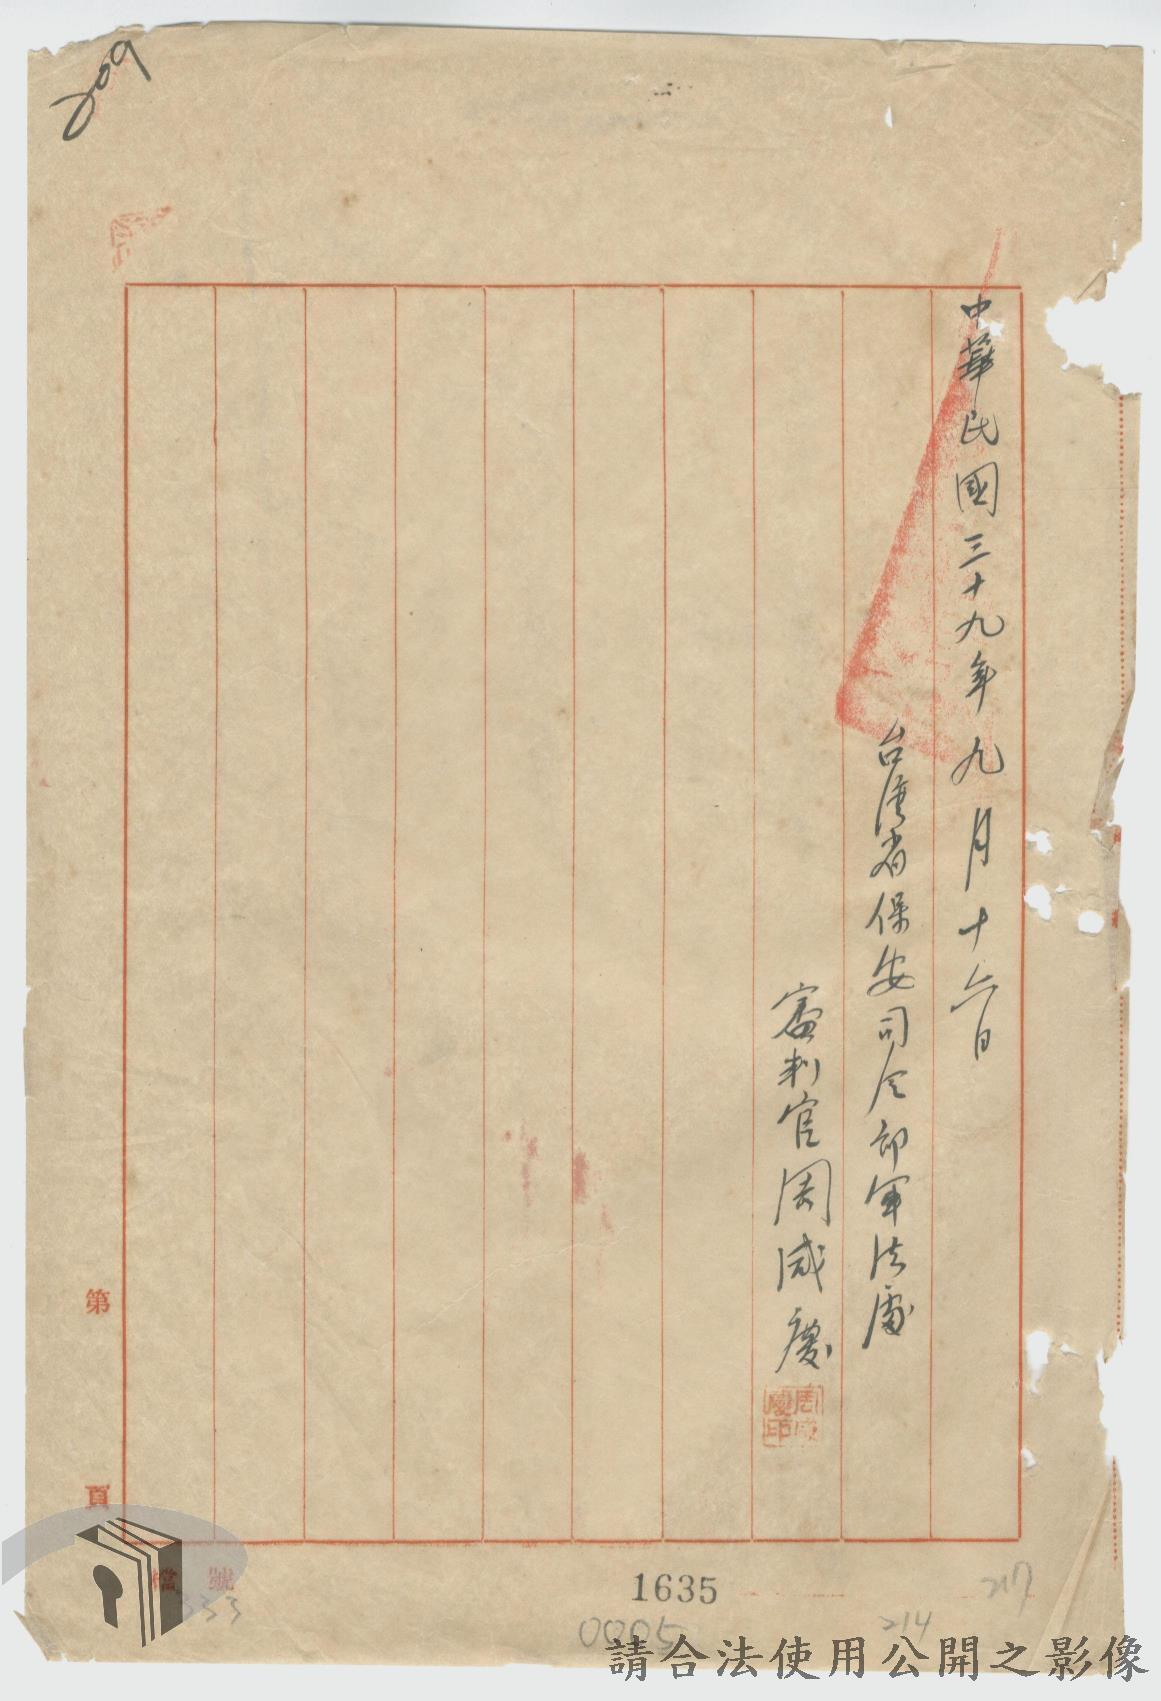 209
中華民國三十九年九月十六日
台灣省保安司令部軍法處
審判官周咸慶
周咸慶印
第
頁
檔號
333
1635
0005
214
217
請合法使用公開之影像